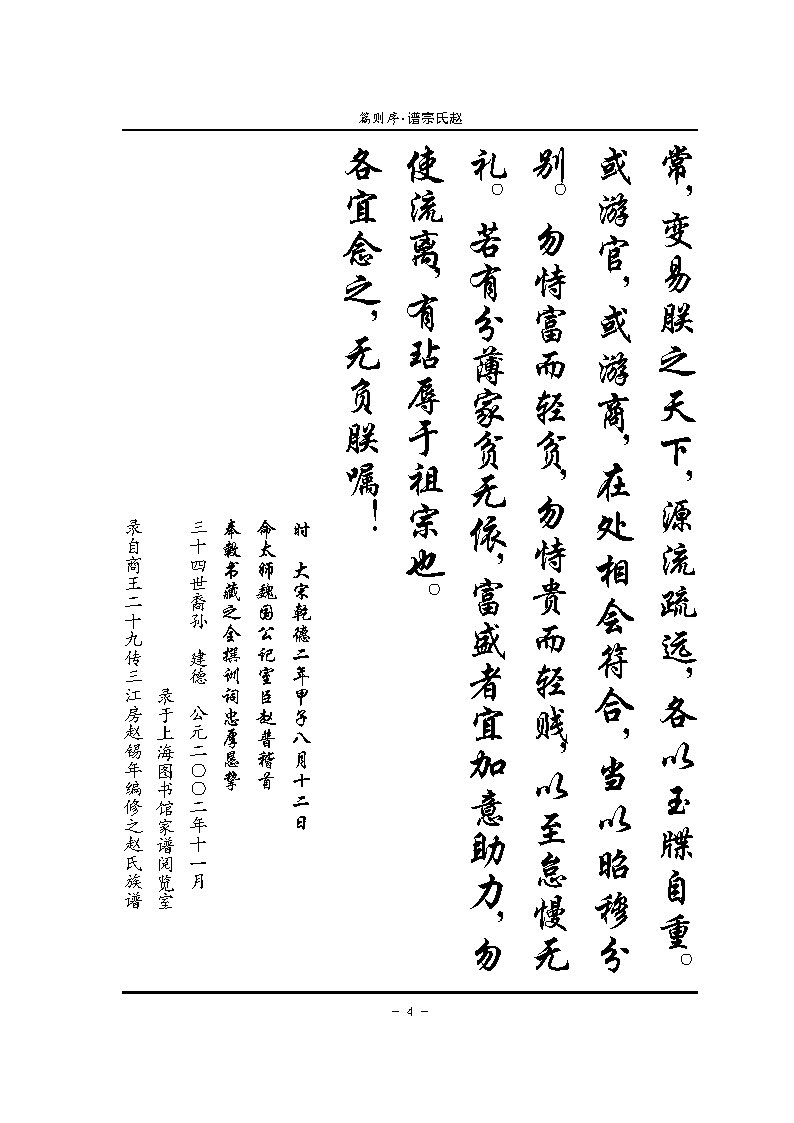 赵氏宗谱·序则篇
常，变易朕之天下，源流疏远，各以玉牒自重。
或游官，或游商，在处相会符合，当以昭穆分
别。勿恃富而轻贫，勿恃贵而轻贱，以至怠慢无
礼。若有分薄家贫无依，富盛者宜加意助力，勿
使流离，有玷辱于祖宗也。
各宜念之，无负朕嘱！
时　大宋乾德二年甲子八月十二日
命太师魏国公记室臣赵普稽首
奉敕书藏之全撰训词忠厚恳挚
三十四世裔孙　建德　公元二〇〇二年十一月
录于上海图书馆家谱阅览室
录自商王二十九传三江房赵锡年编修之赵氏族谱
- 4 -